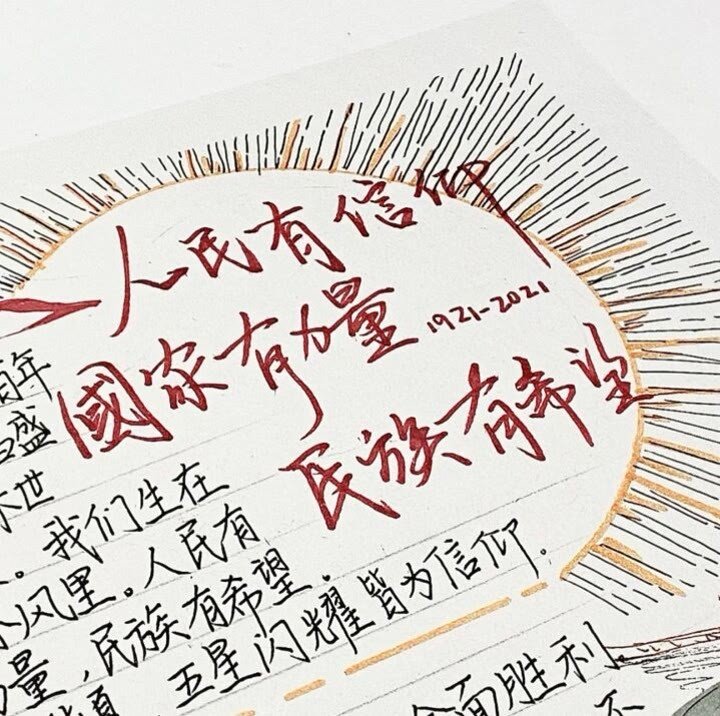 人民有信仰
國家有力量
1921-2021
民族有希望
百年
盛
世
。我们生在
风里。人民有
力量,民族有希望。
五星闪耀皆为信仰.
全面胜利
不